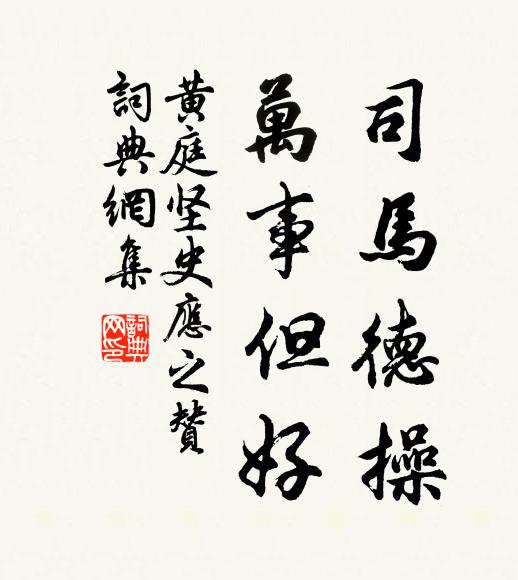 司馬德操
萬事但好
黄庭坚史應之贊
詞典網集
詞典网印